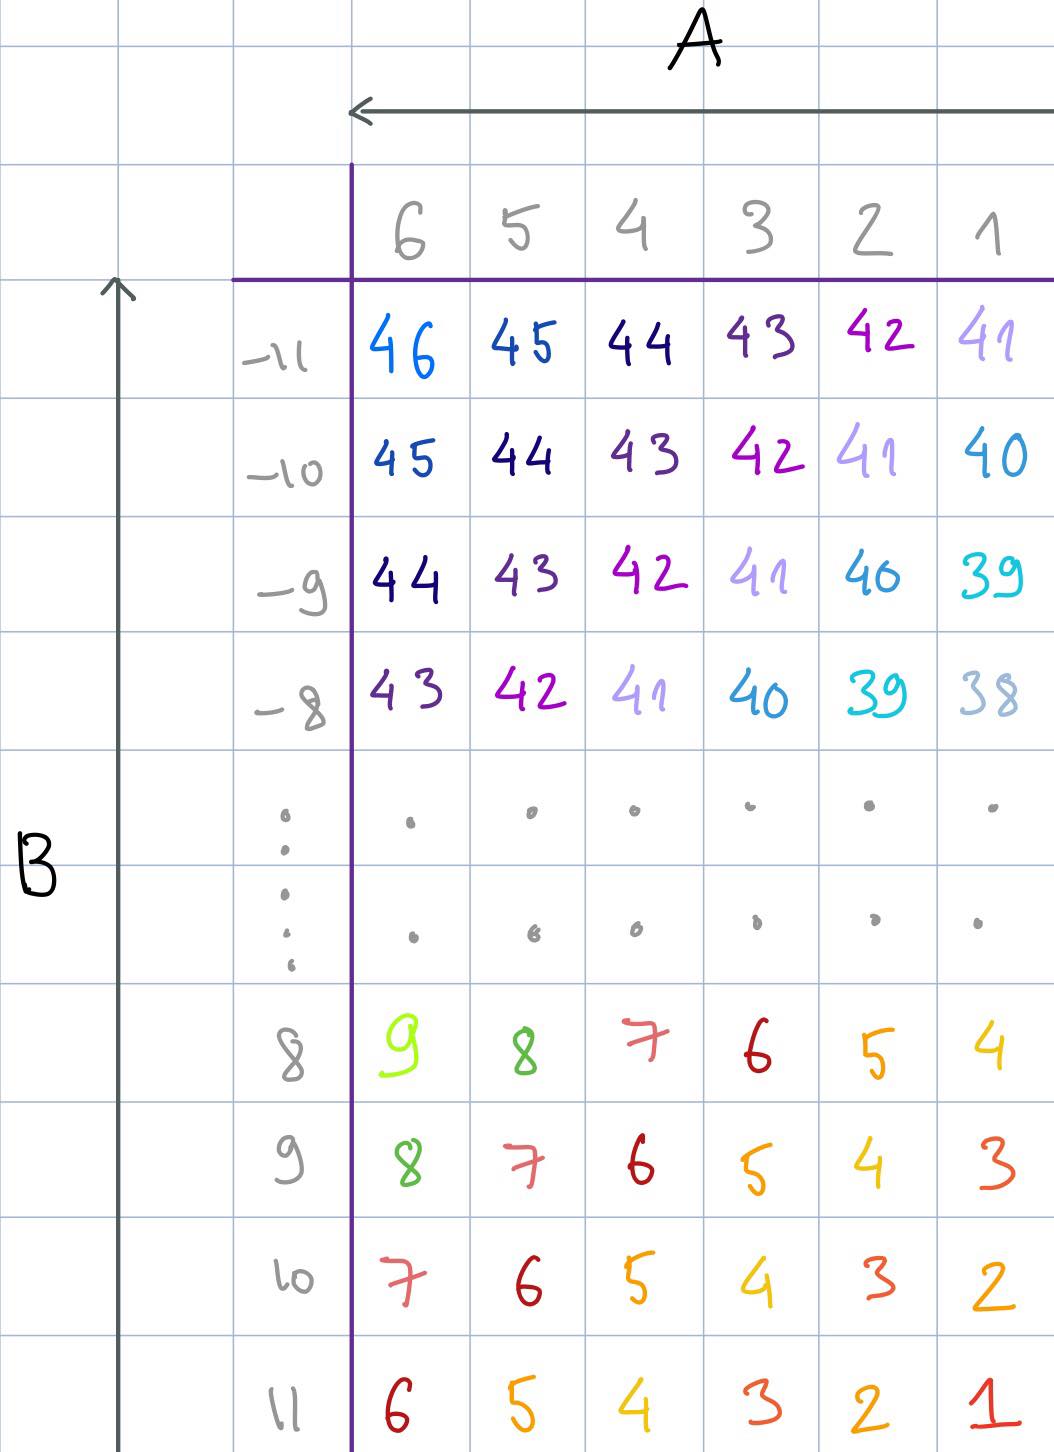 A
6 5 4 3 2 1
-11 46 45 44 43 42 41
-10 45 44 43 42 41 40
-9 44 43 42 41 40 39
-8 43 42 41 40 39 38
B
8 9 8 7 6 5 4
9 8 7 6 5 4 3
10 7 6 5 4 3 2
11 6 5 4 3 2 1